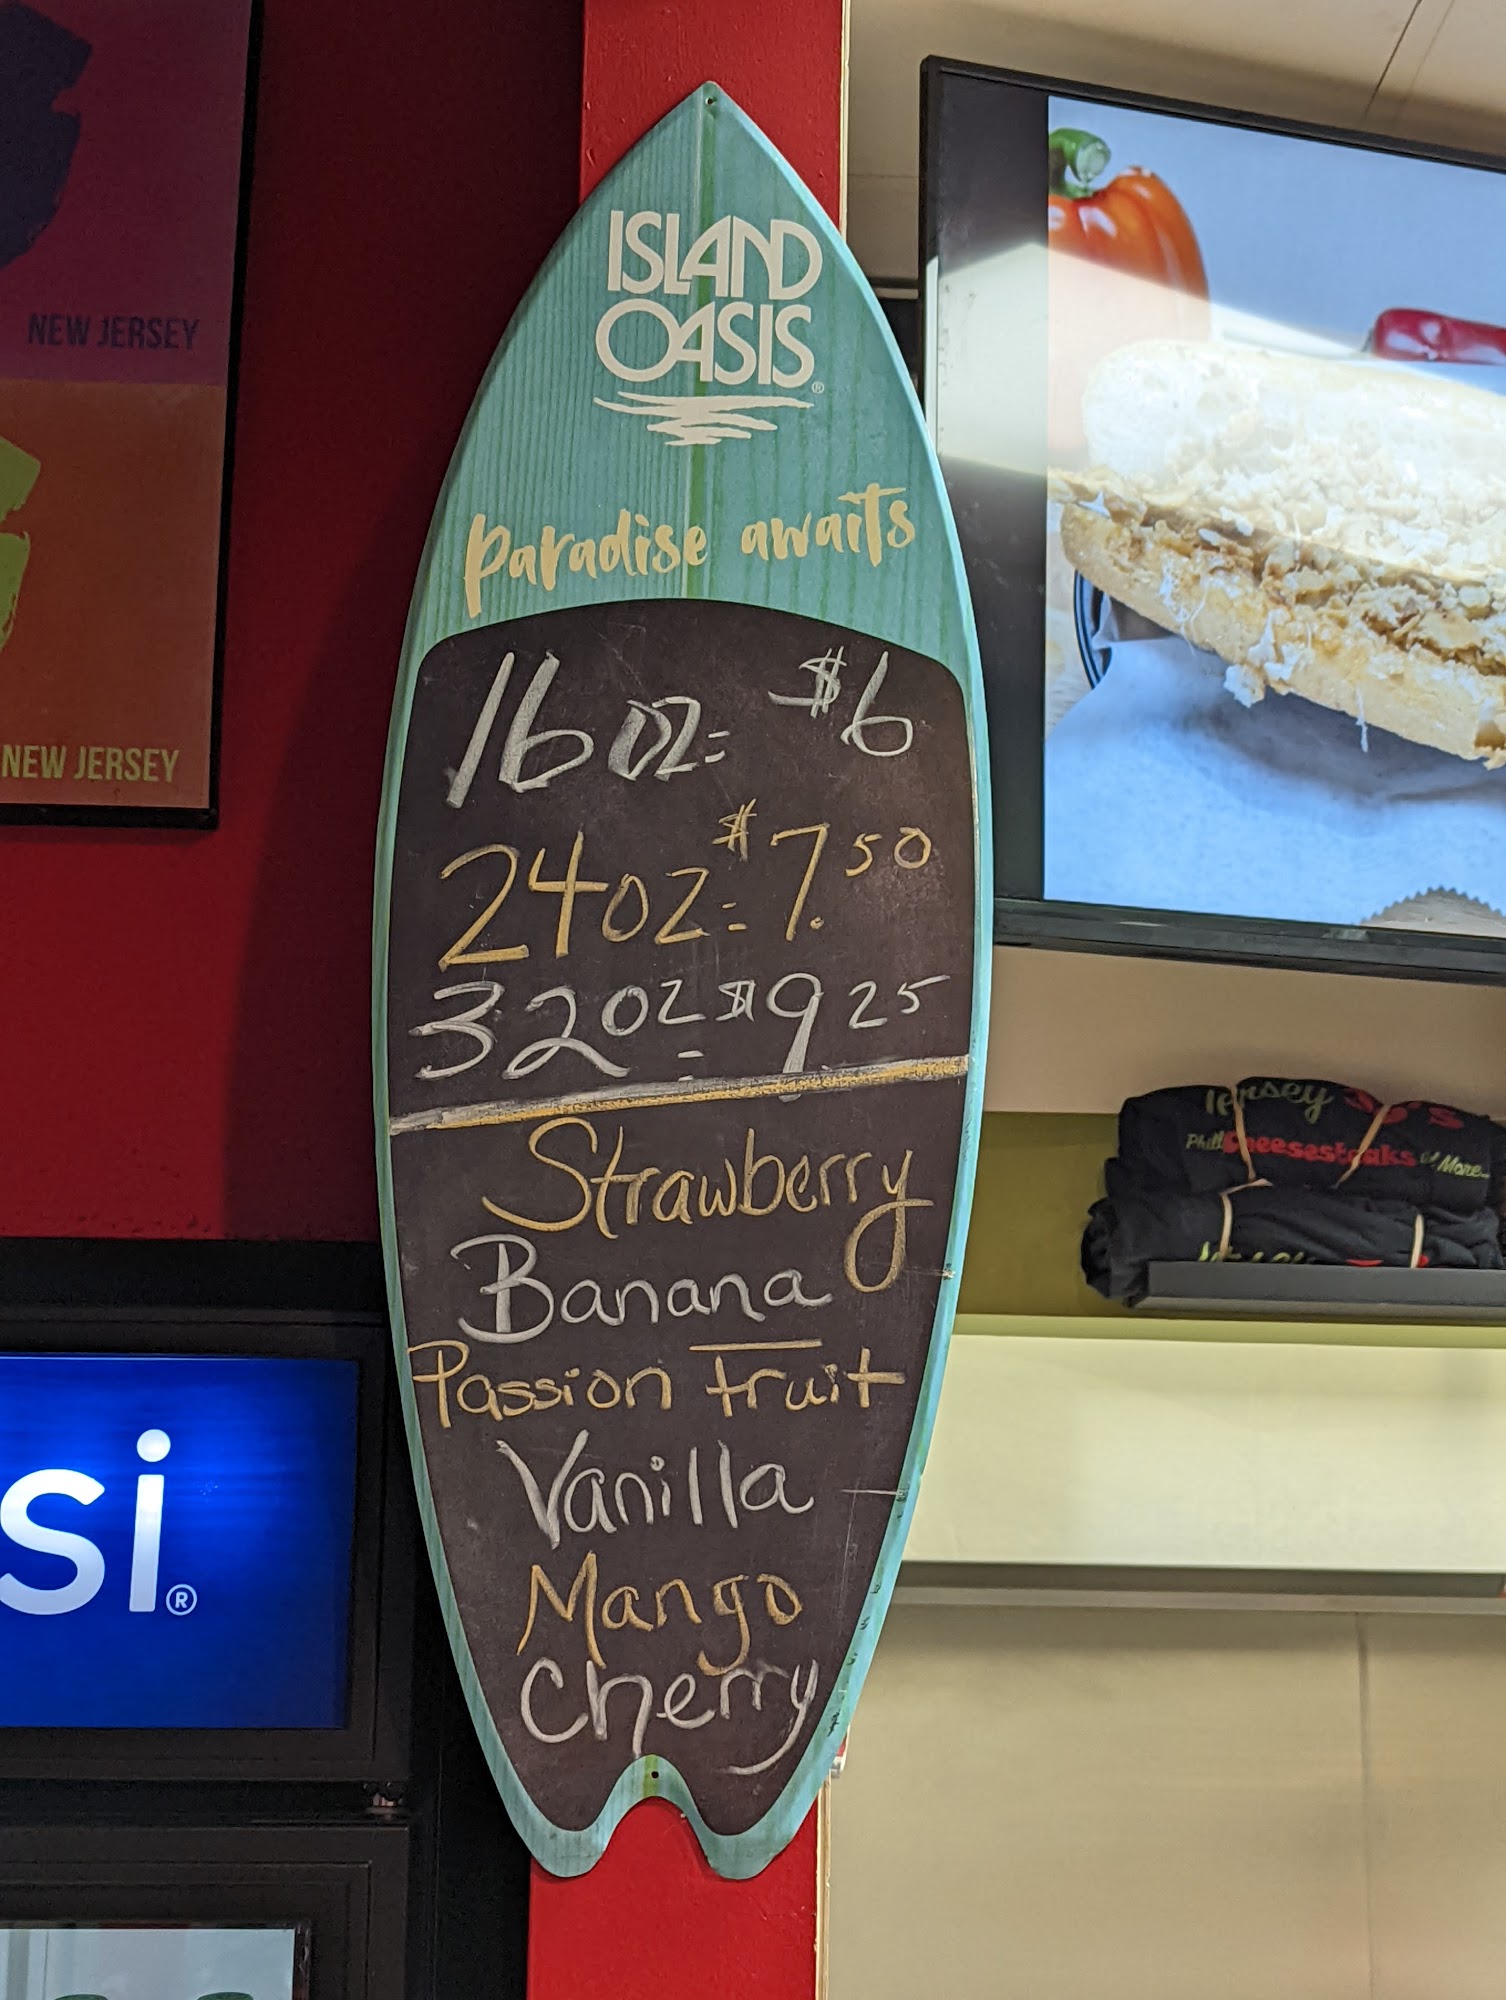 ISLAND
OASIS
®
Paradise awaits
16 oz = $6
24 oz = $7.50
32 oz = $9.25
Strawberry
Banana
Passion Fruit
Vanilla
Mango
Cherry
NEW JERSEY
NEW JERSEY
si®
Jersey
Cheesesteaks & More